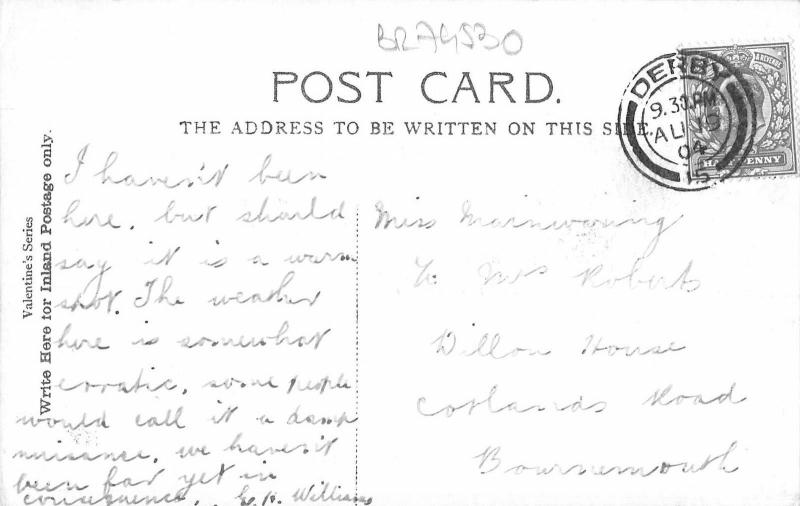 BRA4530
POST CARD.
THE ADDRESS TO BE WRITTEN ON THIS SIDE.
DERBY
9.30 PM
AU 19
04
15
& REVENUE
HALFPENNY
Valentine's Series
Write Here for Inland Postage only.
I haven't been
here, but should
say it is a warm
spot. The weather
here is somewhat
erratic, some people
would call it a damp
nuisance, we haven't
been far yet in
consequence. Williams
Miss Mainwaring
Mrs Roberts
Dillon House
Road
Bournemouth